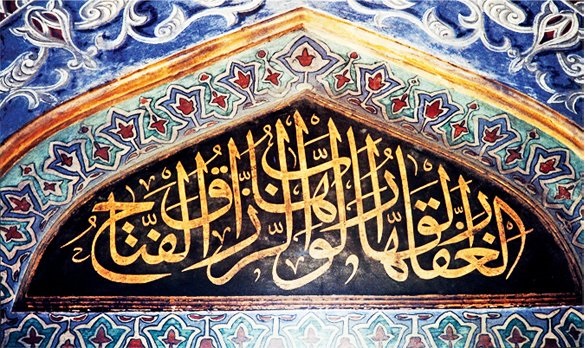 الغفار القهار الوهاب الرزاق الفتاح